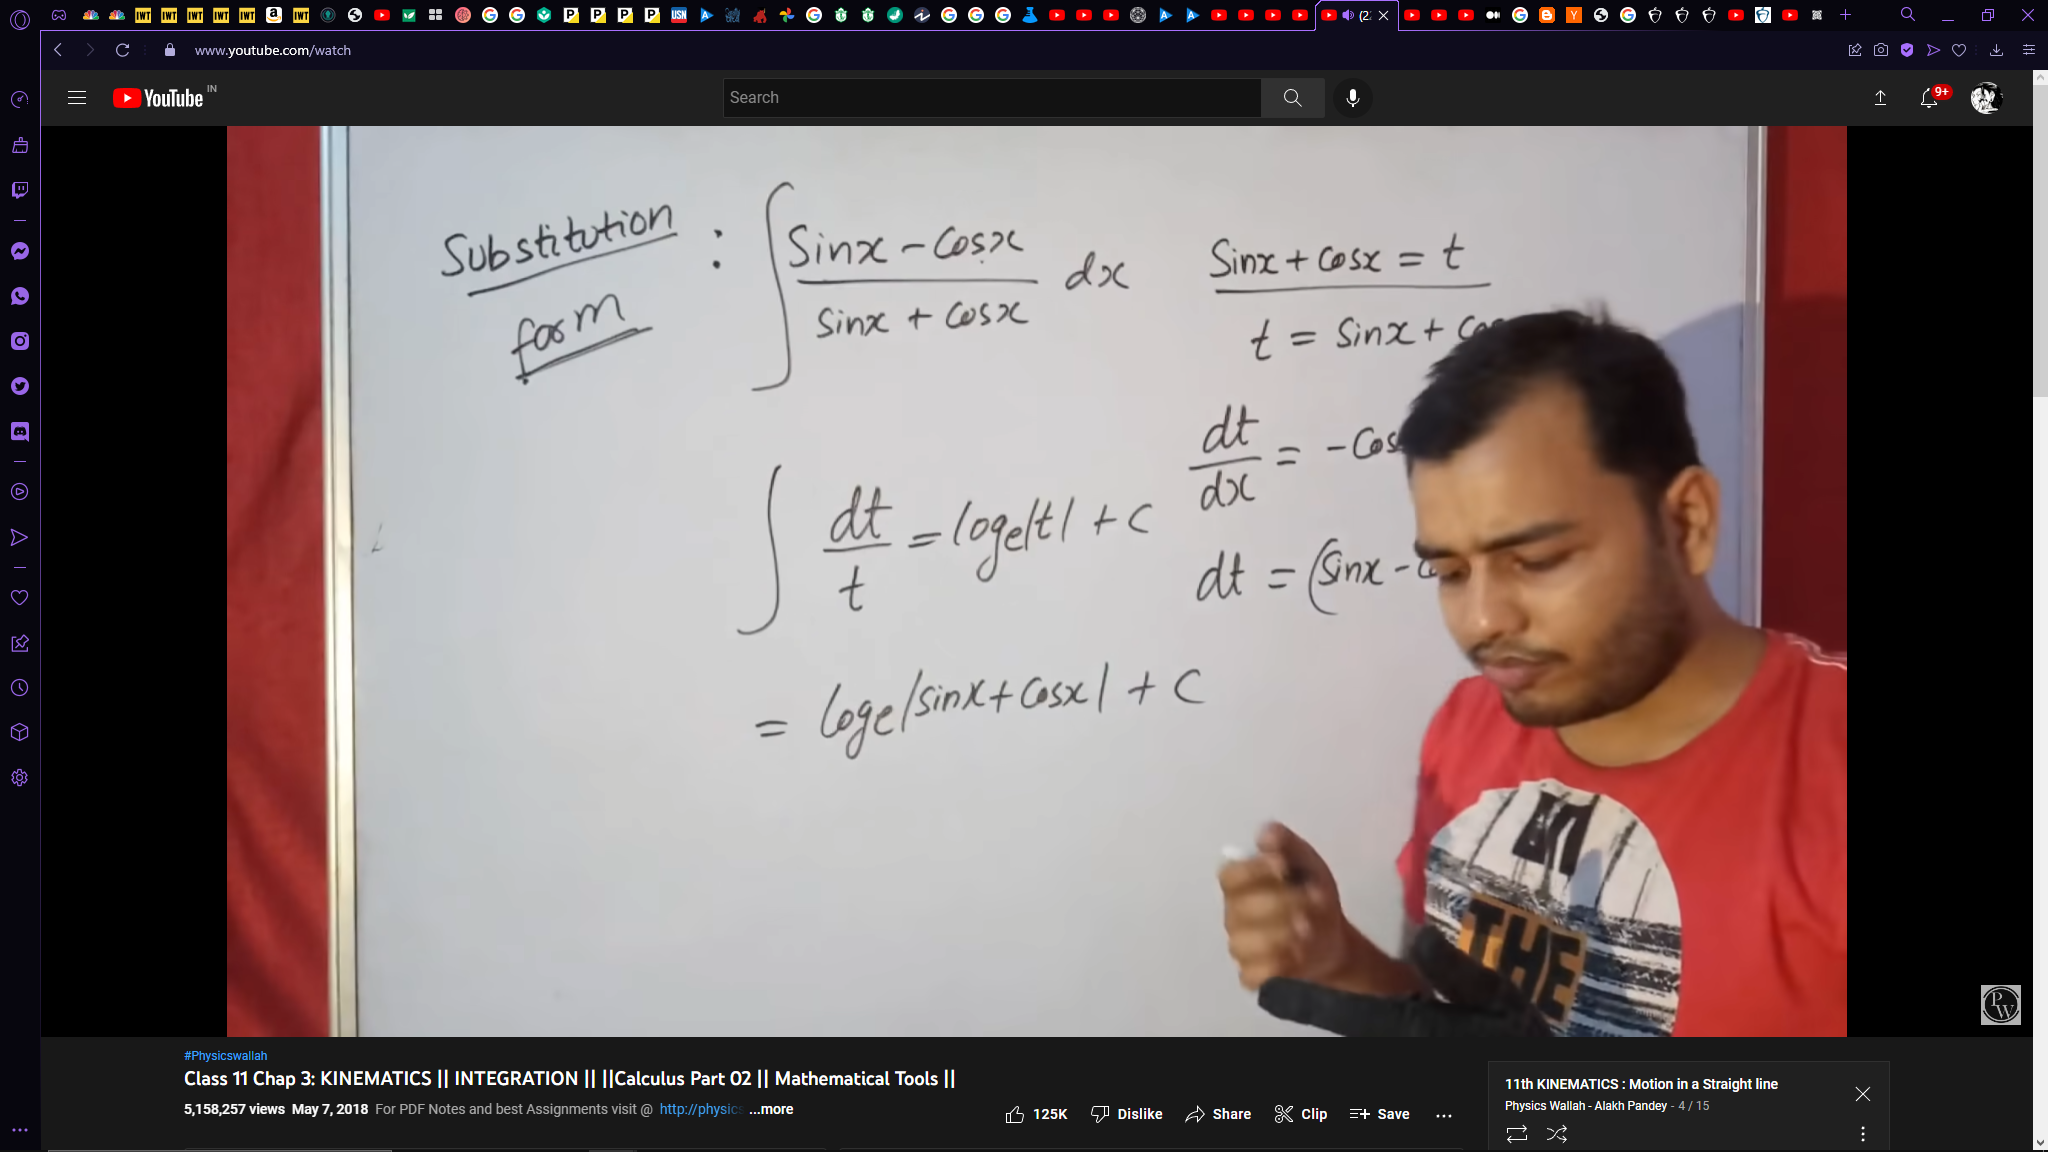 www.youtube.com/watch
YouTube IN
Search
9+
Substitution
form
: ∫ Sinx - Cosx / Sinx + Cosx dx
Sinx + Cosx = t
t = Sinx +
dt/dx = - Cos
∫ dt/t = loge|t| + C
dt = (Sinx -
= loge|sinx + Cosx| + C
THE
PW
#Physicswallah
Class 11 Chap 3: KINEMATICS || INTEGRATION || ||Calculus Part 02 || Mathematical Tools ||
5,158,257 views May 7, 2018 For PDF Notes and best Assignments visit @ http://physic ...more
125K Dislike Share Clip Save
11th KINEMATICS : Motion in a Straight line
Physics Wallah - Alakh Pandey - 4 / 15